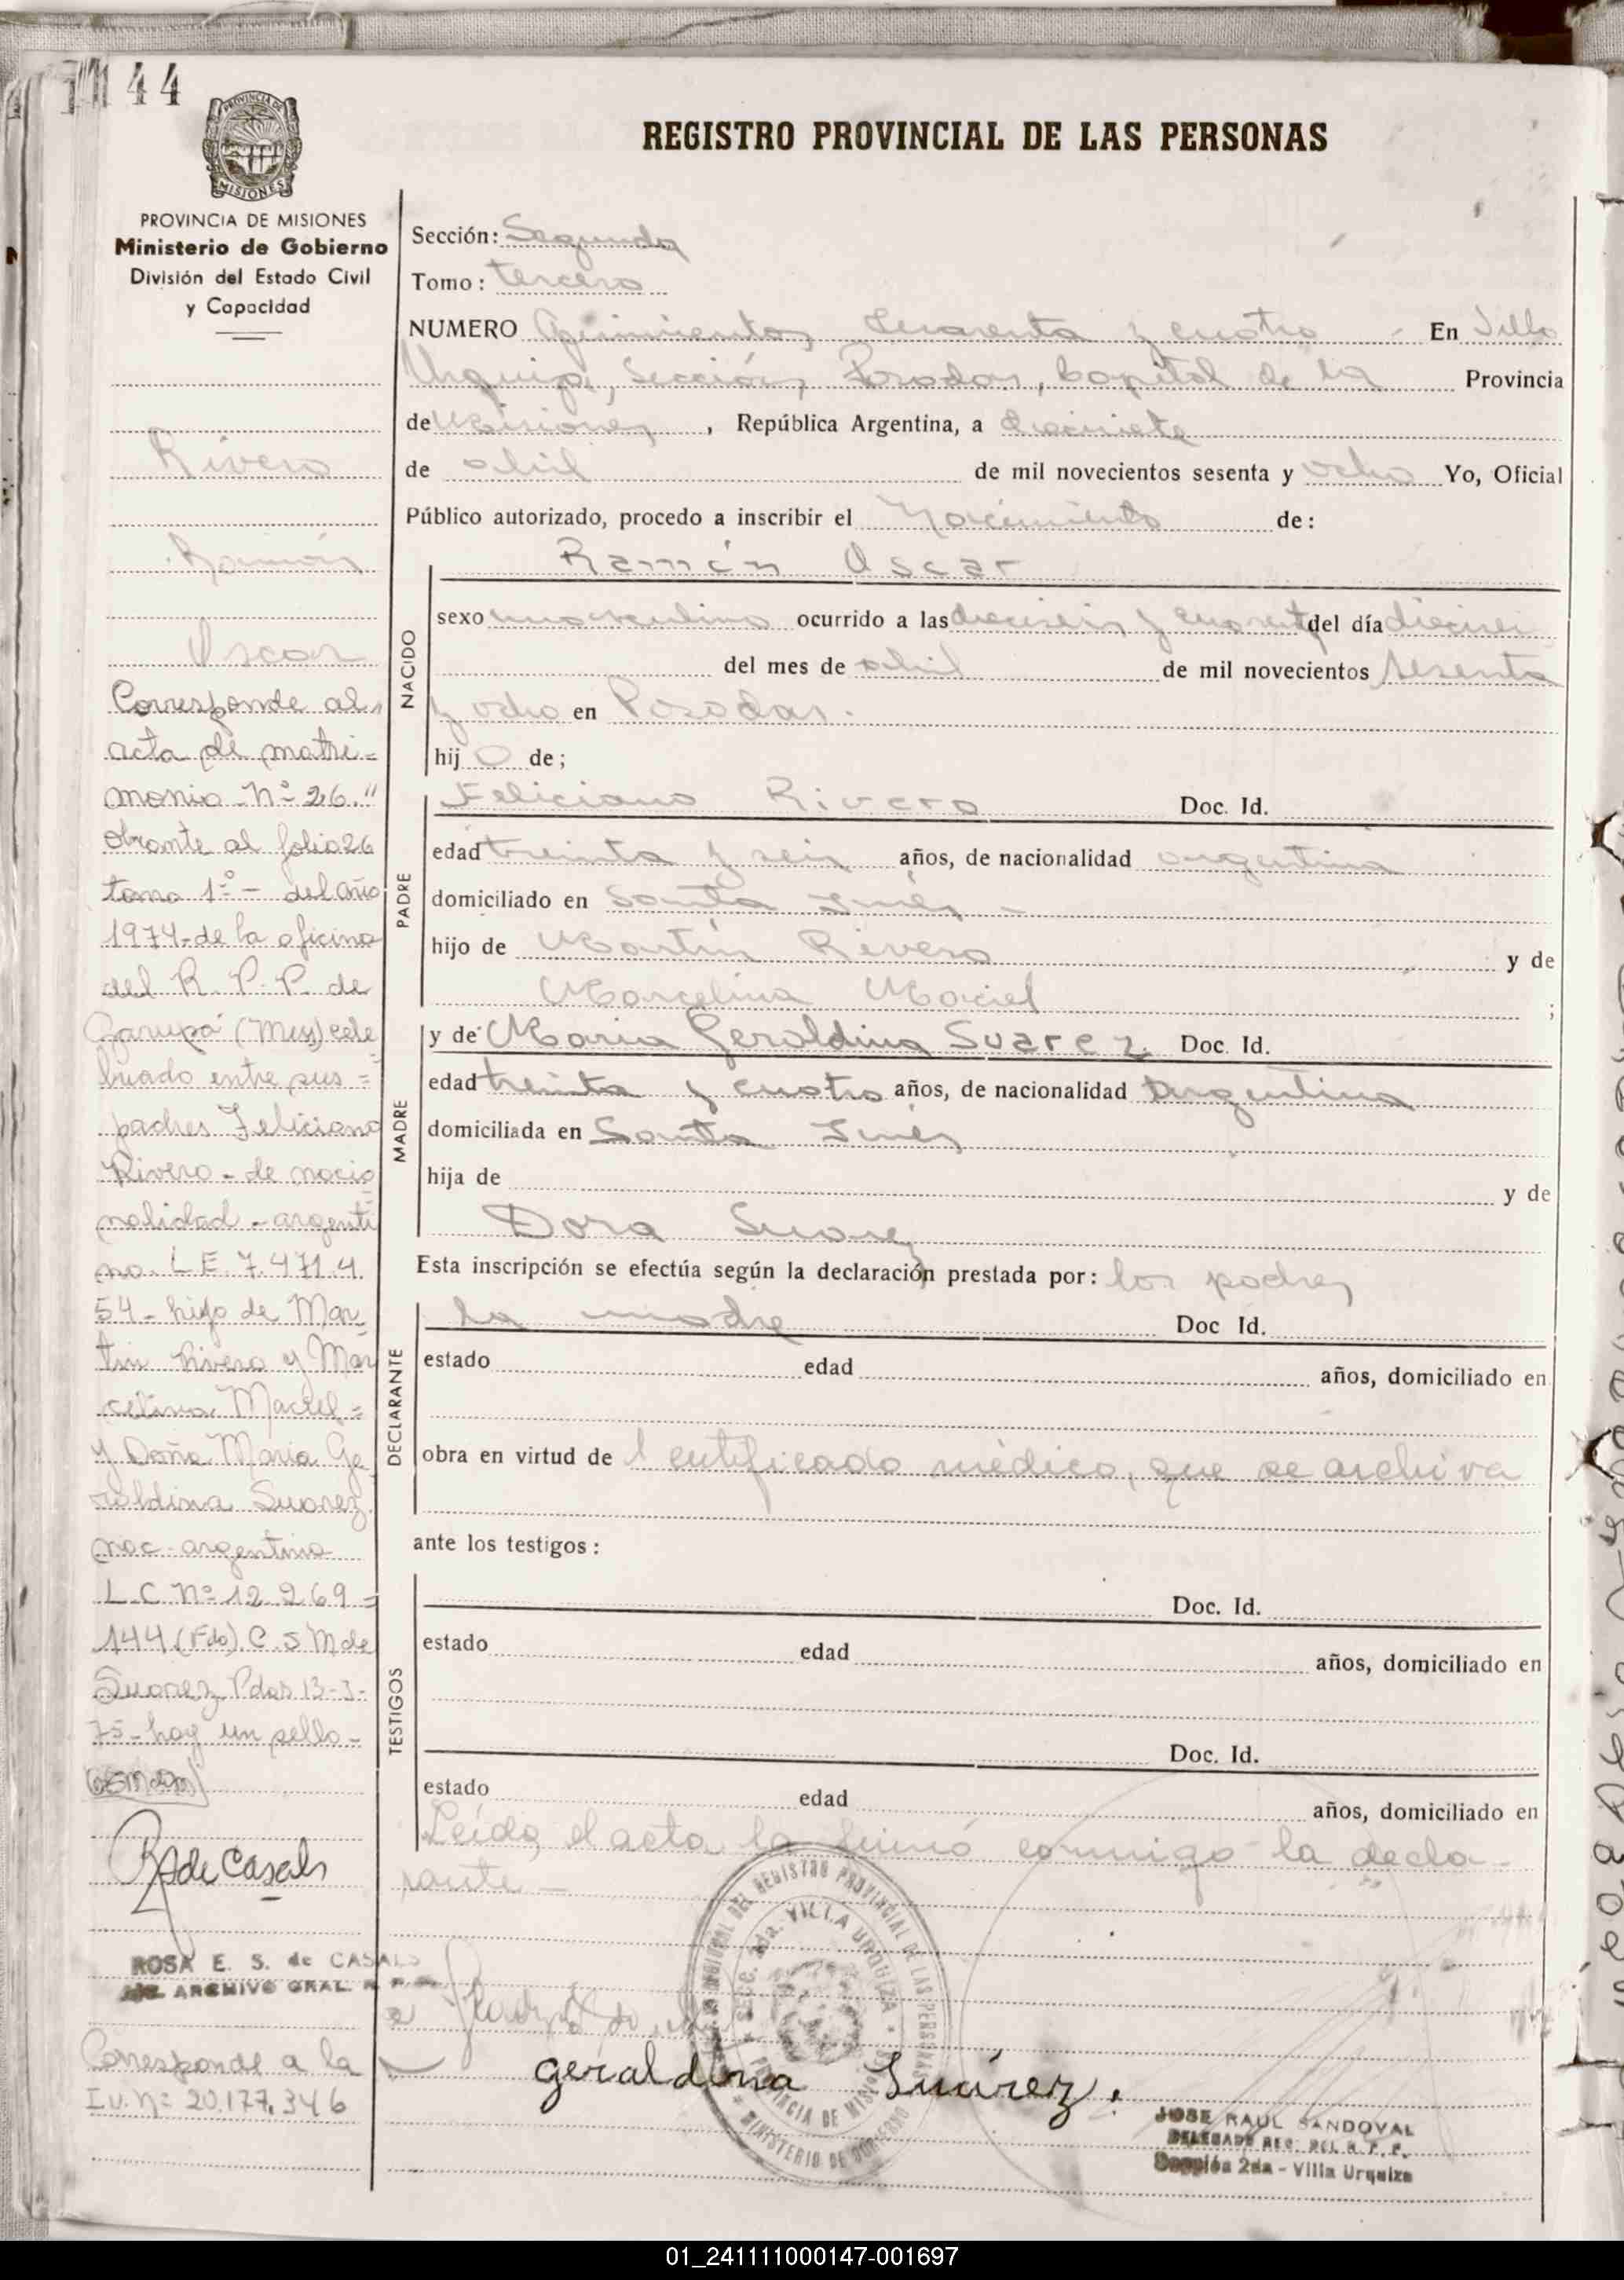 44
REGISTRO PROVINCIAL DE LAS PERSONAS
PROVINCIA DE MISIONES
PROVINCIA DE MISIONES
Ministerio de Gobierno
División del Estado Civil
y Capacidad
Rivero
Ramón
Oscar
Corresponde al
acta de matri=
monio Nº 26."
obrante al folio 26
tomo 1º - del año
1974- de la oficina
del R. P. P. de
Garupá (Mns) cele
brado entre sus =
padres Feliciano
Rivero - de nacio
nalidad - argenti
no. L E. 7.471.4
54 - hijo de Mar_
tin Rivero y Mar
celina Maciel =
y Doña Maria Ge
raldina Suarez
nac- argentina
L.C. Nº 12.269=
144 (Fdo) C. S M de
Suarez Pdas 13-3-
75 - hay un sello -
RSde Casals
ROSA E. S. de CASALS
ARCHIVO GRAL. R. P.
Corresponde a la
Nº 20.177.346
Sección: Segunda
Tomo: tercero
NUMERO Quinientos cuarenta y cuatro - En Villa
Urquiza, Sección, Posadas, Capital de la Provincia
de Misiones, República Argentina, a diecisiete
de abril de mil novecientos sesenta y ocho Yo, Oficial
Público autorizado, procedo a inscribir el Nacimiento de:
Ramón Oscar
NACIDO
sexo masculino ocurrido a las dieciseis y cuarenta del día dieciseis
del mes de abril de mil novecientos sesenta
y ocho en Posadas.
hij o de;
PADRE
Feliciano Rivero Doc. Id.
edad treinta y seis años, de nacionalidad argentina
domiciliado en Santa Inés -
hijo de Martín Rivero y de
Marcelina Maciel ;
MADRE
y de Maria Geraldina Suarez Doc. Id.
edad treinta y cuatro años, de nacionalidad argentina
domiciliada en Santa Inés
hija de y de
Dora Suarez
Esta inscripción se efectúa según la declaración prestada por: los padres
DECLARANTE
la madre Doc Id.
estado edad años, domiciliado en
obra en virtud de l certificado médico, que se archiva
ante los testigos:
TESTIGOS
Doc. Id.
estado edad años, domiciliado en
Doc. Id.
estado edad años, domiciliado en
Leída el acta la firmó conmigo la decla-
rante -
REGISTRO PROVINCIAL DE LAS PERSONAS
Secc. 2da. VILLA URQUIZA
PROVINCIA DE MISIONES
MINISTERIO DE GOBIERNO
geraldina Suárez.
JOSE RAUL SANDOVAL
DELEGADO REG. DEL R. P. P.
Sección 2da - Villa Urquiza
01_241111000147-001697